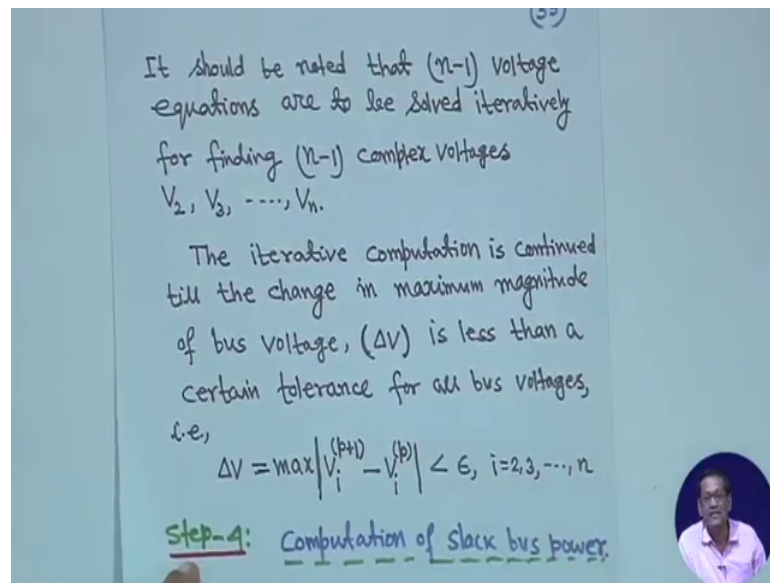 (35)
It should be noted that (n-1) voltage
equations are to be solved iteratively
for finding (n-1) complex voltages
V₂, V₃, ----, Vn.
The iterative computation is continued
till the change in maximum magnitude
of bus voltage, (ΔV) is less than a
certain tolerance for all bus voltages,
i.e.,
ΔV = max|Vᵢ^(p+1) - Vᵢ^(p)| < ϵ, i=2,3,---,n
Step-4: Computation of slack bus power.